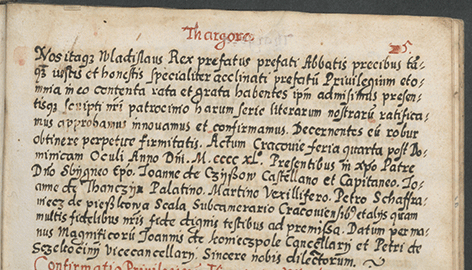 Thargowe
25.
Nos itaqz Wladislaus Rex prefatus prefati Abbatis precibus tā-
qz iustis et honestis specialiter acclinati prefatū Privilegium et o-
mnia in eo contenta rata et grata habentes ipm admisimus presen-
tisqz scripti nri patrocinio harum serie literarum nostrarū ratifica-
mus approbamus innouamus et confirmamus. Decernentes eū robur
obtinere perpetue firmitatis. Actum Cracovie feria quarta post Do-
minicam Oculi Anno Dni. M. cccc XL. Presentibus in xpo Patre
Dno Sbigneo epo. Joanne de Czyssow Castellano et Capitaneo. Jo-
anne de Thanczin Palatino. Martino Vexillifero. Petro Schaffra-
niecz de pieskowa Scala Subcamerario Cracoviensibz et alys quam
multis fidelibus nris fide dignis testibus ad premissa. Datum per ma-
nus Magnificorū Joannis de Konieczpole Cancellarij et Petri de
Sczekociny vicecancellarij. Sincere nobis dilectorum.
Confirmatio Privilegij